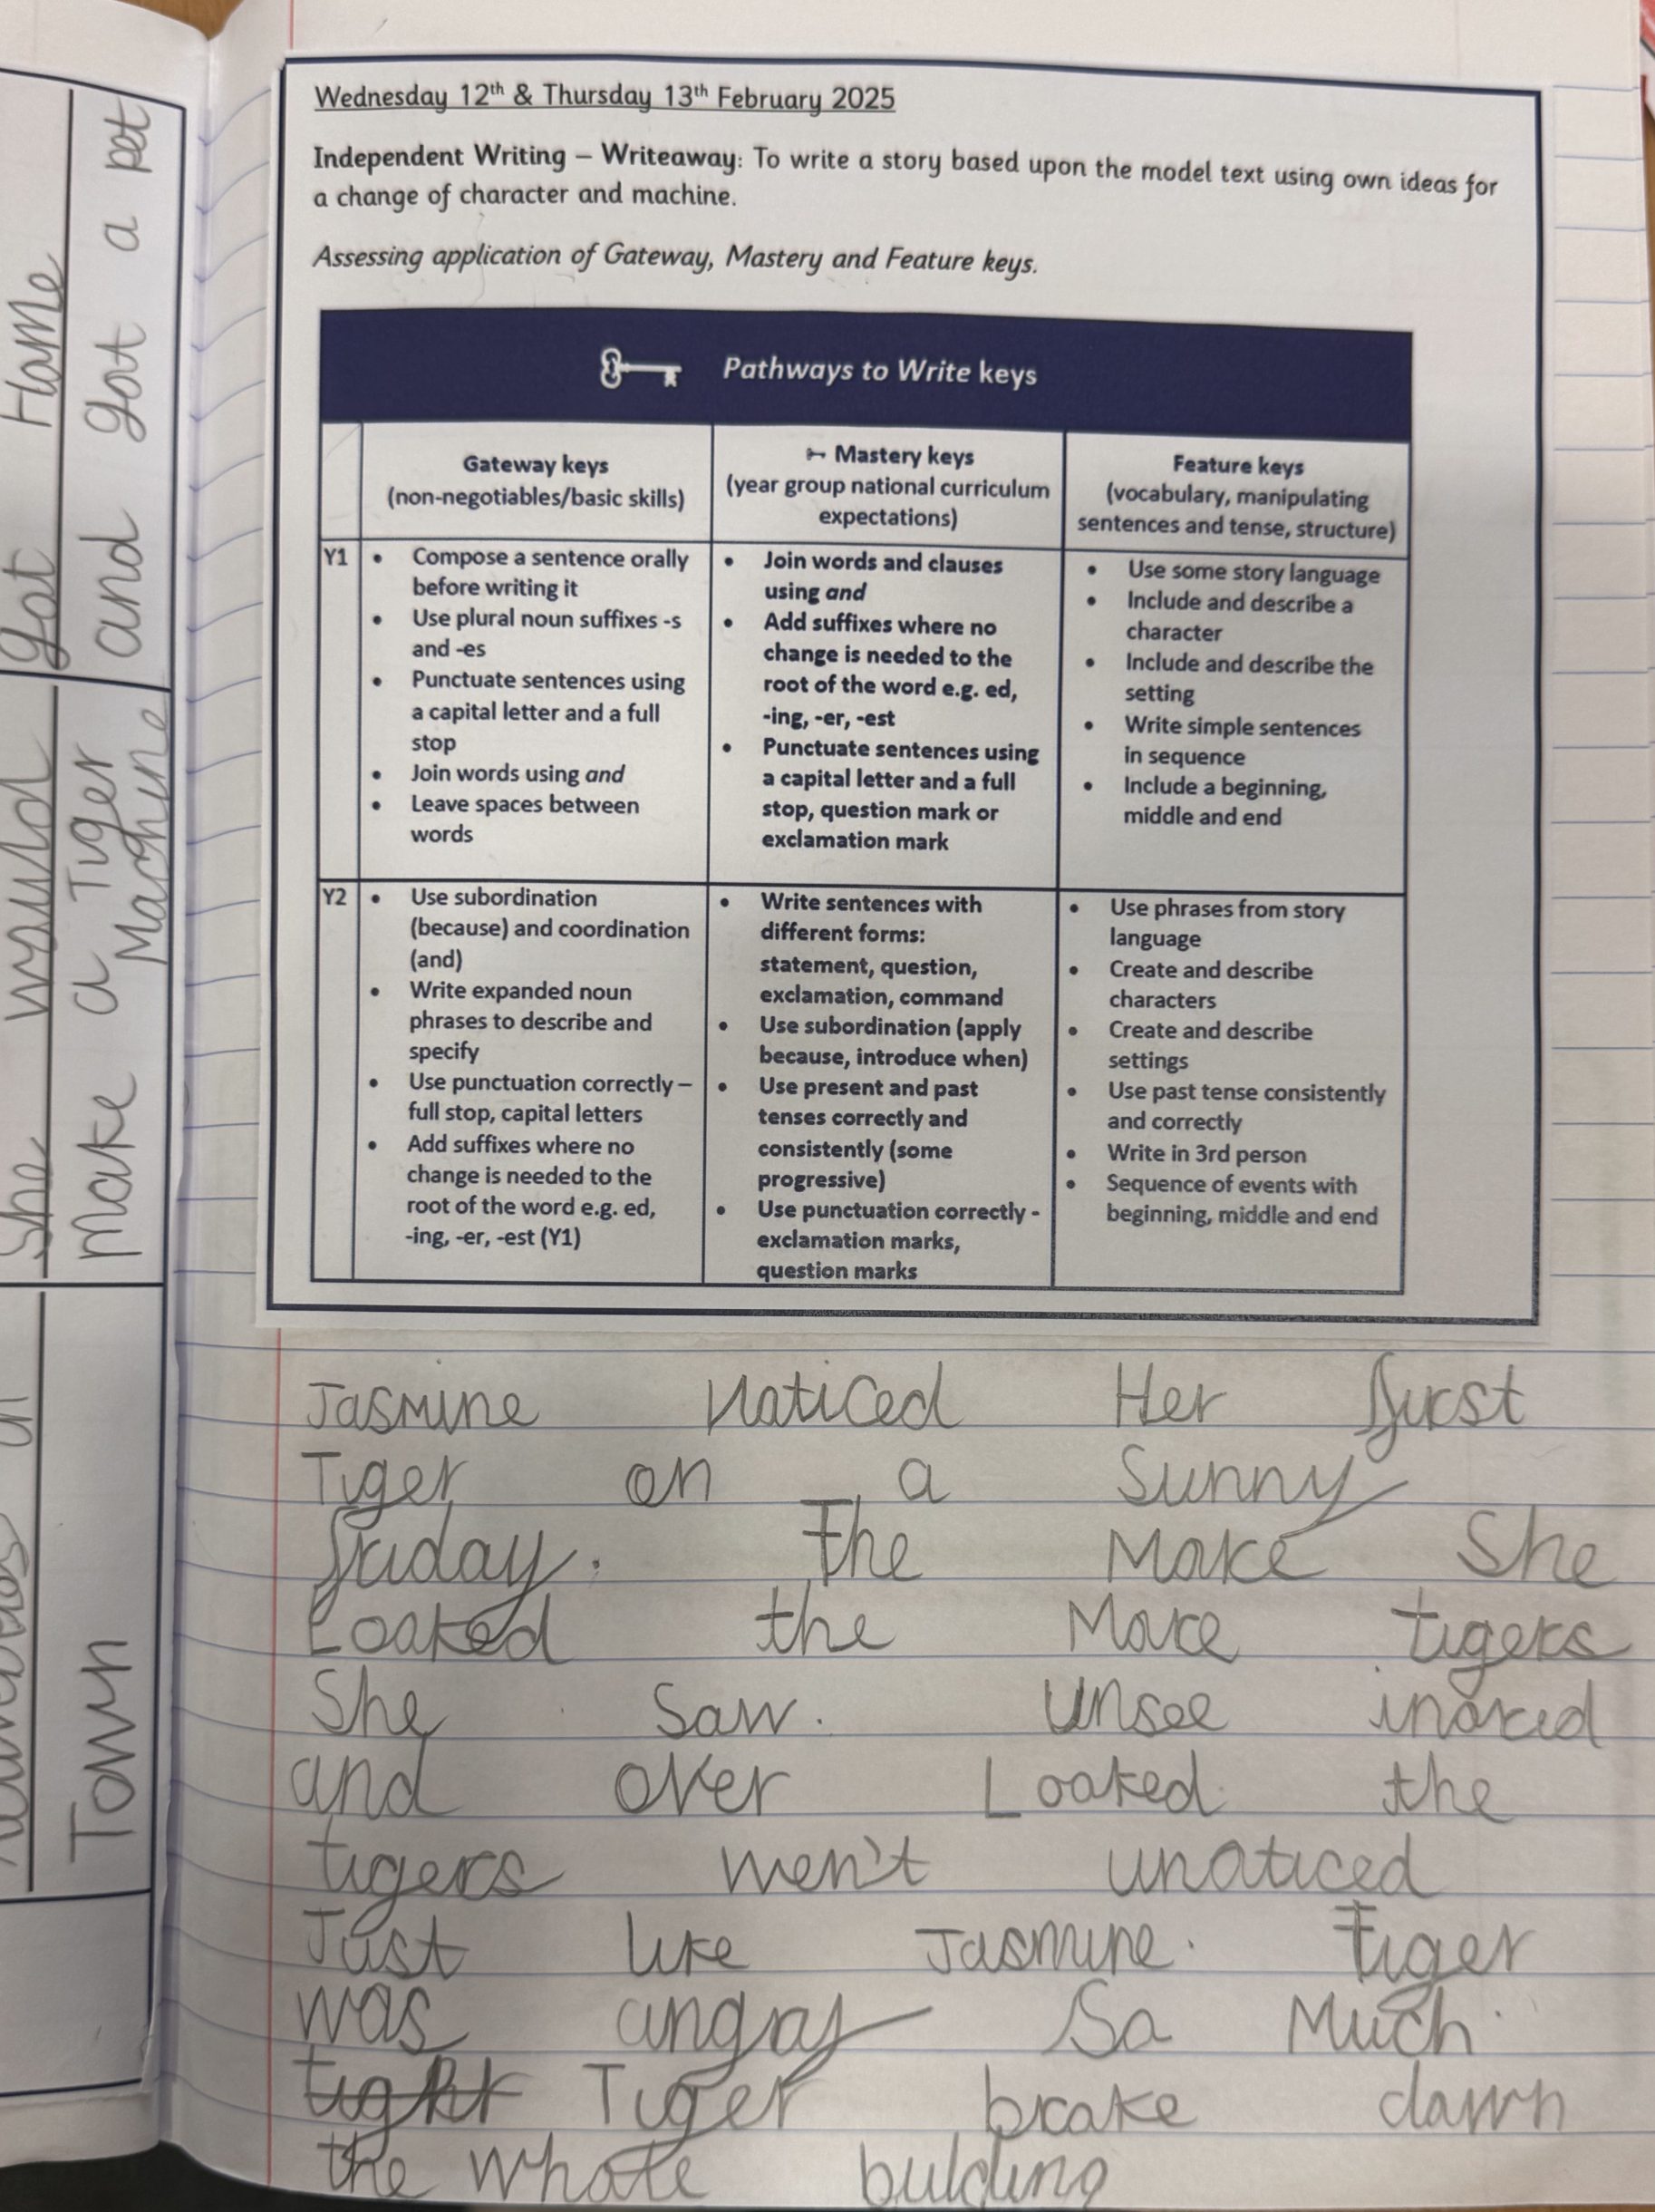 Wednesday 12th & Thursday 13th February 2025
Independent Writing – Writeaway: To write a story based upon the model text using own ideas for
a change of character and machine.
Assessing application of Gateway, Mastery and Feature keys.
Pathways to Write keys
Gateway keys
(non-negotiables/basic skills)
Mastery keys
(year group national curriculum
expectations)
Feature keys
(vocabulary, manipulating
sentences and tense, structure)
Y1
• Compose a sentence orally
before writing it
• Use plural noun suffixes -s
and -es
• Punctuate sentences using
a capital letter and a full
stop
• Join words using and
• Leave spaces between
words
• Join words and clauses
using and
• Add suffixes where no
change is needed to the
root of the word e.g. ed,
-ing, -er, -est
• Punctuate sentences using
a capital letter and a full
stop, question mark or
exclamation mark
• Use some story language
• Include and describe a
character
• Include and describe the
setting
• Write simple sentences
in sequence
• Include a beginning,
middle and end
Y2
• Use subordination
(because) and coordination
(and)
• Write expanded noun
phrases to describe and
specify
• Use punctuation correctly –
full stop, capital letters
• Add suffixes where no
change is needed to the
root of the word e.g. ed,
-ing, -er, -est (Y1)
• Write sentences with
different forms:
statement, question,
exclamation, command
• Use subordination (apply
because, introduce when)
• Use present and past
tenses correctly and
consistently (some
progressive)
• Use punctuation correctly -
exclamation marks,
question marks
• Use phrases from story
language
• Create and describe
characters
• Create and describe
settings
• Use past tense consistently
and correctly
• Write in 3rd person
• Sequence of events with
beginning, middle and end
Jasmine noticed Her first
Tiger on a Sunny
friday. The More She
Looked the More tigers
She Saw. Unsee inored
and over Looked the
tigers wen't unoticed
Just like Jasmine. Tiger
was angray So Much.
Tiger brake down
the whole bulding
got Home
and got a pet
She would
make a Tiger
Machine
Town